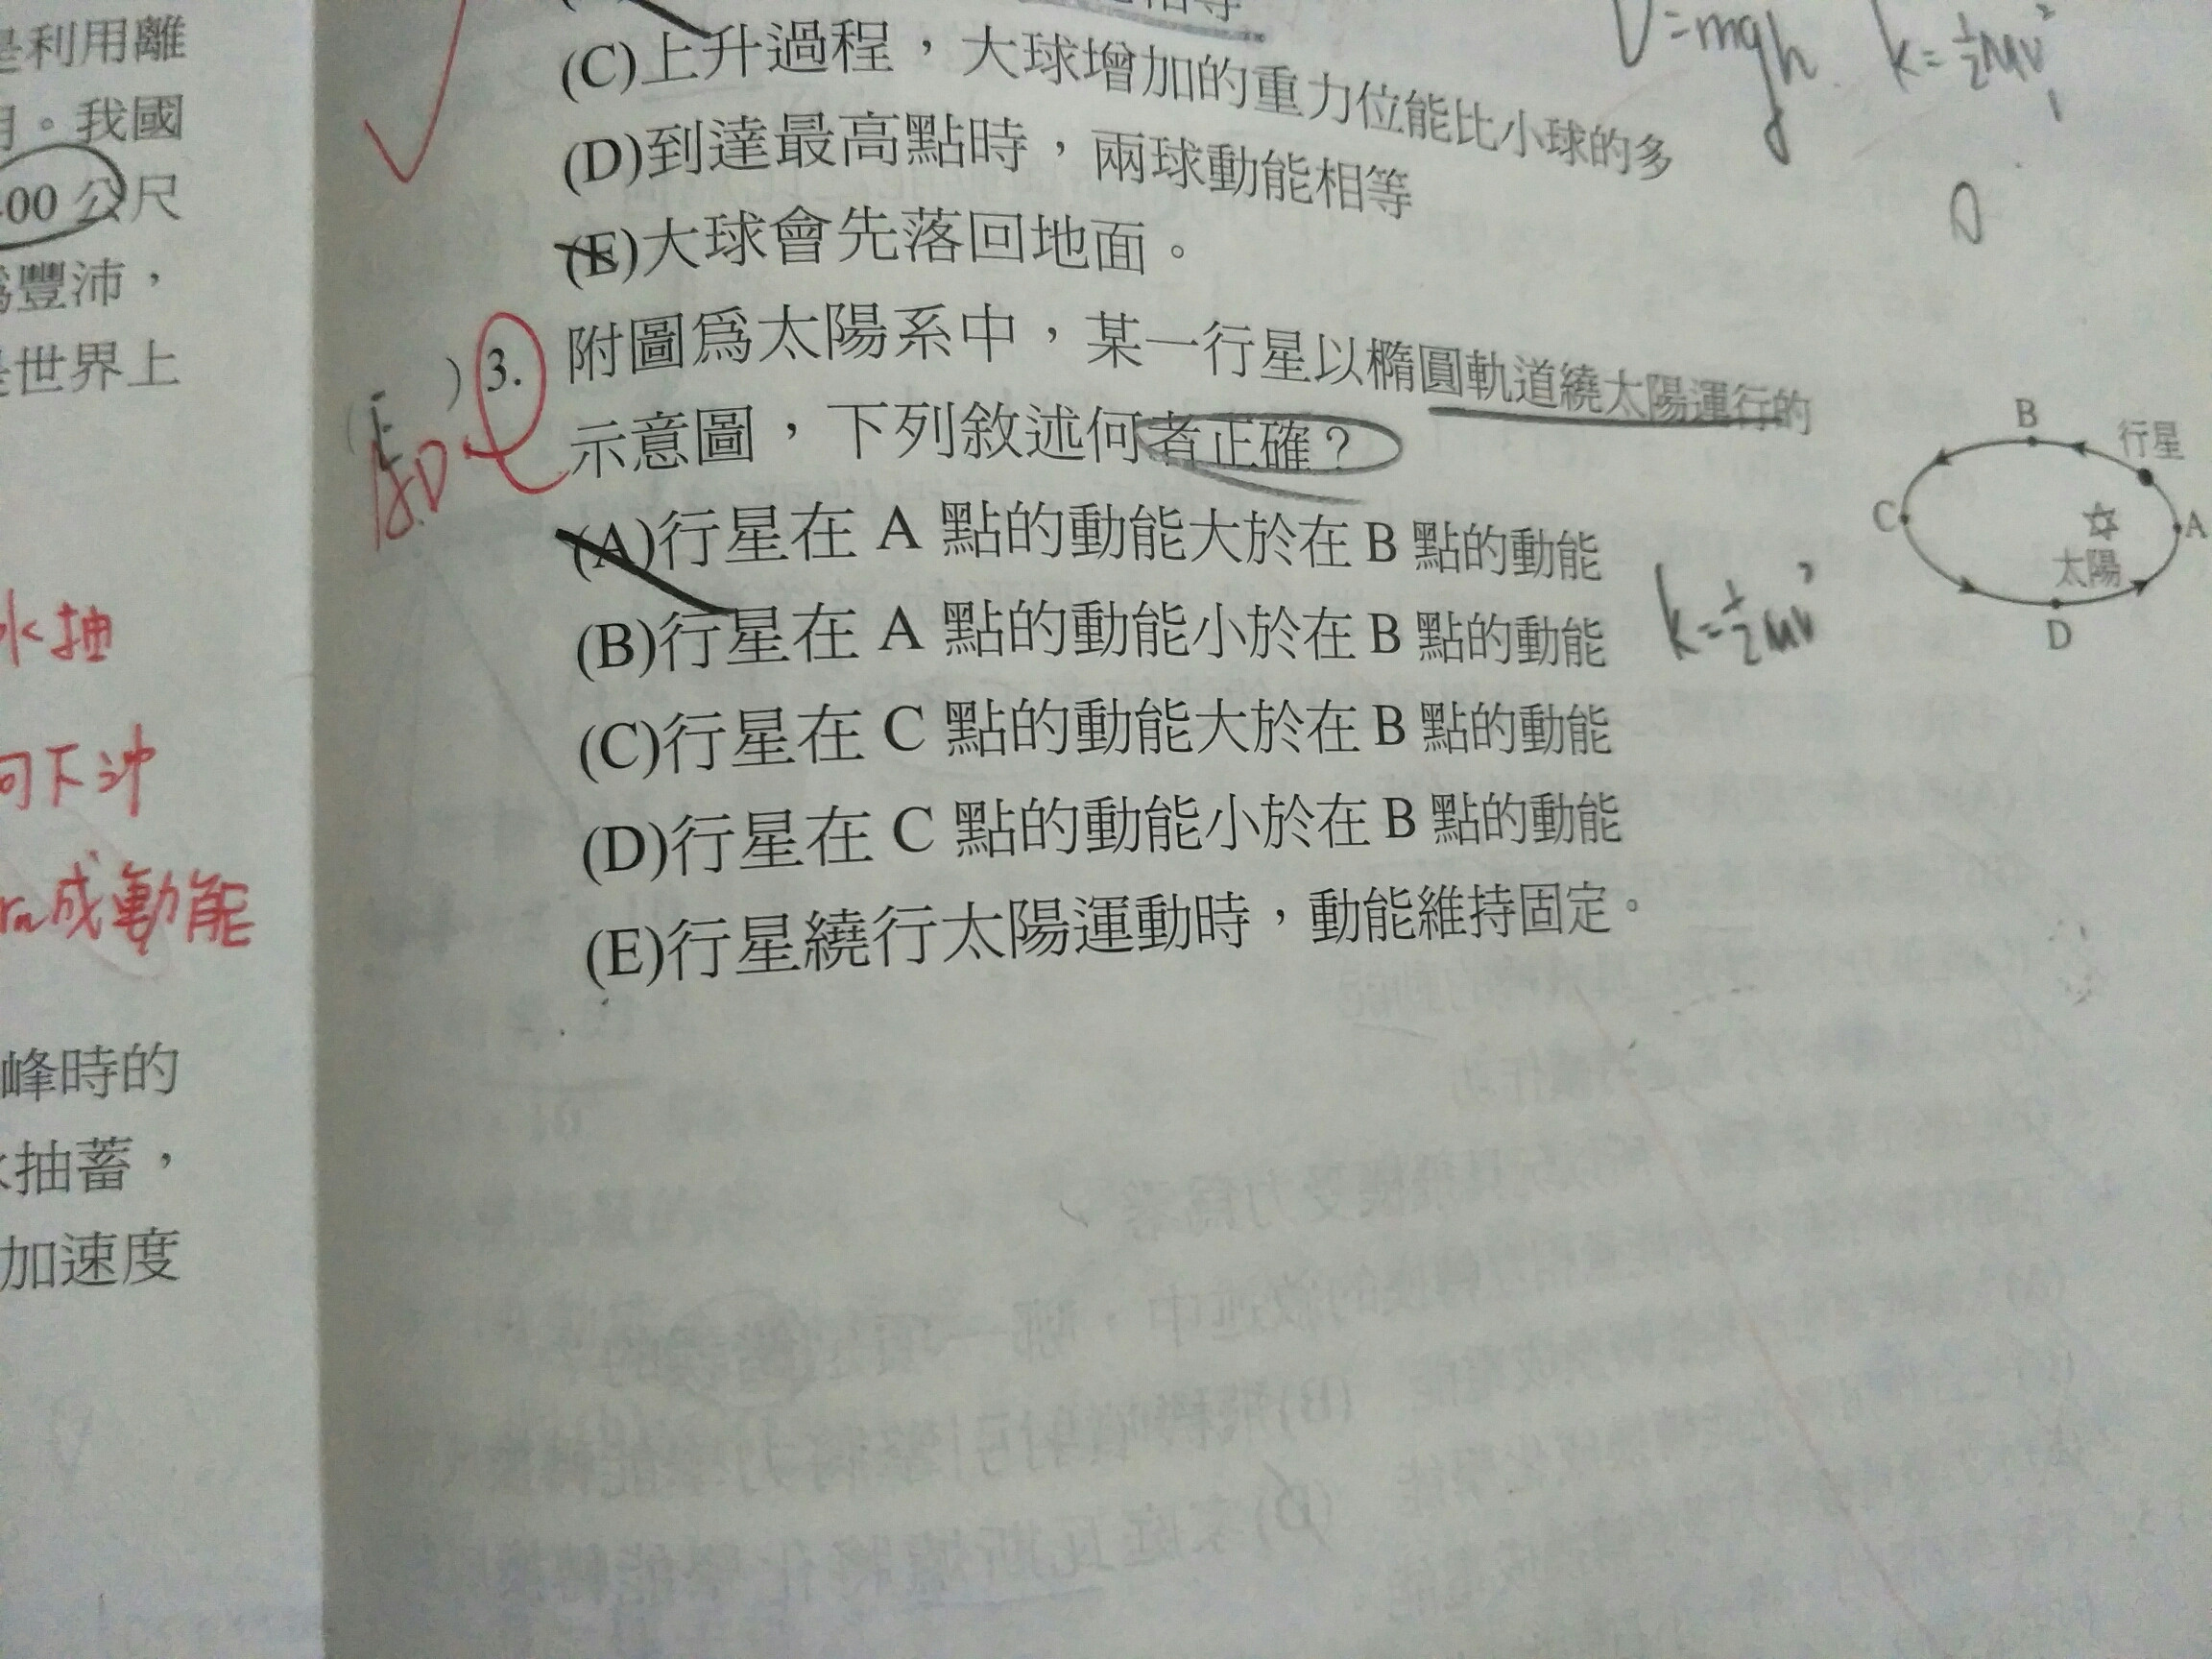 是利用離
用。我國
400 公尺
為豐沛，
是世界上
水抽
向下沖
成動能
峰時的
水抽蓄，
加速度
相等
(C)上升過程，大球增加的重力位能比小球的多
(D)到達最高點時，兩球動能相等
(E)大球會先落回地面。
U=mgh
k=½mv²
) 3. 附圖爲太陽系中，某一行星以橢圓軌道繞太陽運行的
示意圖，下列敘述何者正確？
A.D
(A)行星在 A 點的動能大於在 B 點的動能
(B)行星在 A 點的動能小於在 B 點的動能
(C)行星在 C 點的動能大於在 B 點的動能
(D)行星在 C 點的動能小於在 B 點的動能
(E)行星繞行太陽運動時，動能維持固定。
k=½mv²
B
行星
C
A
太陽
D